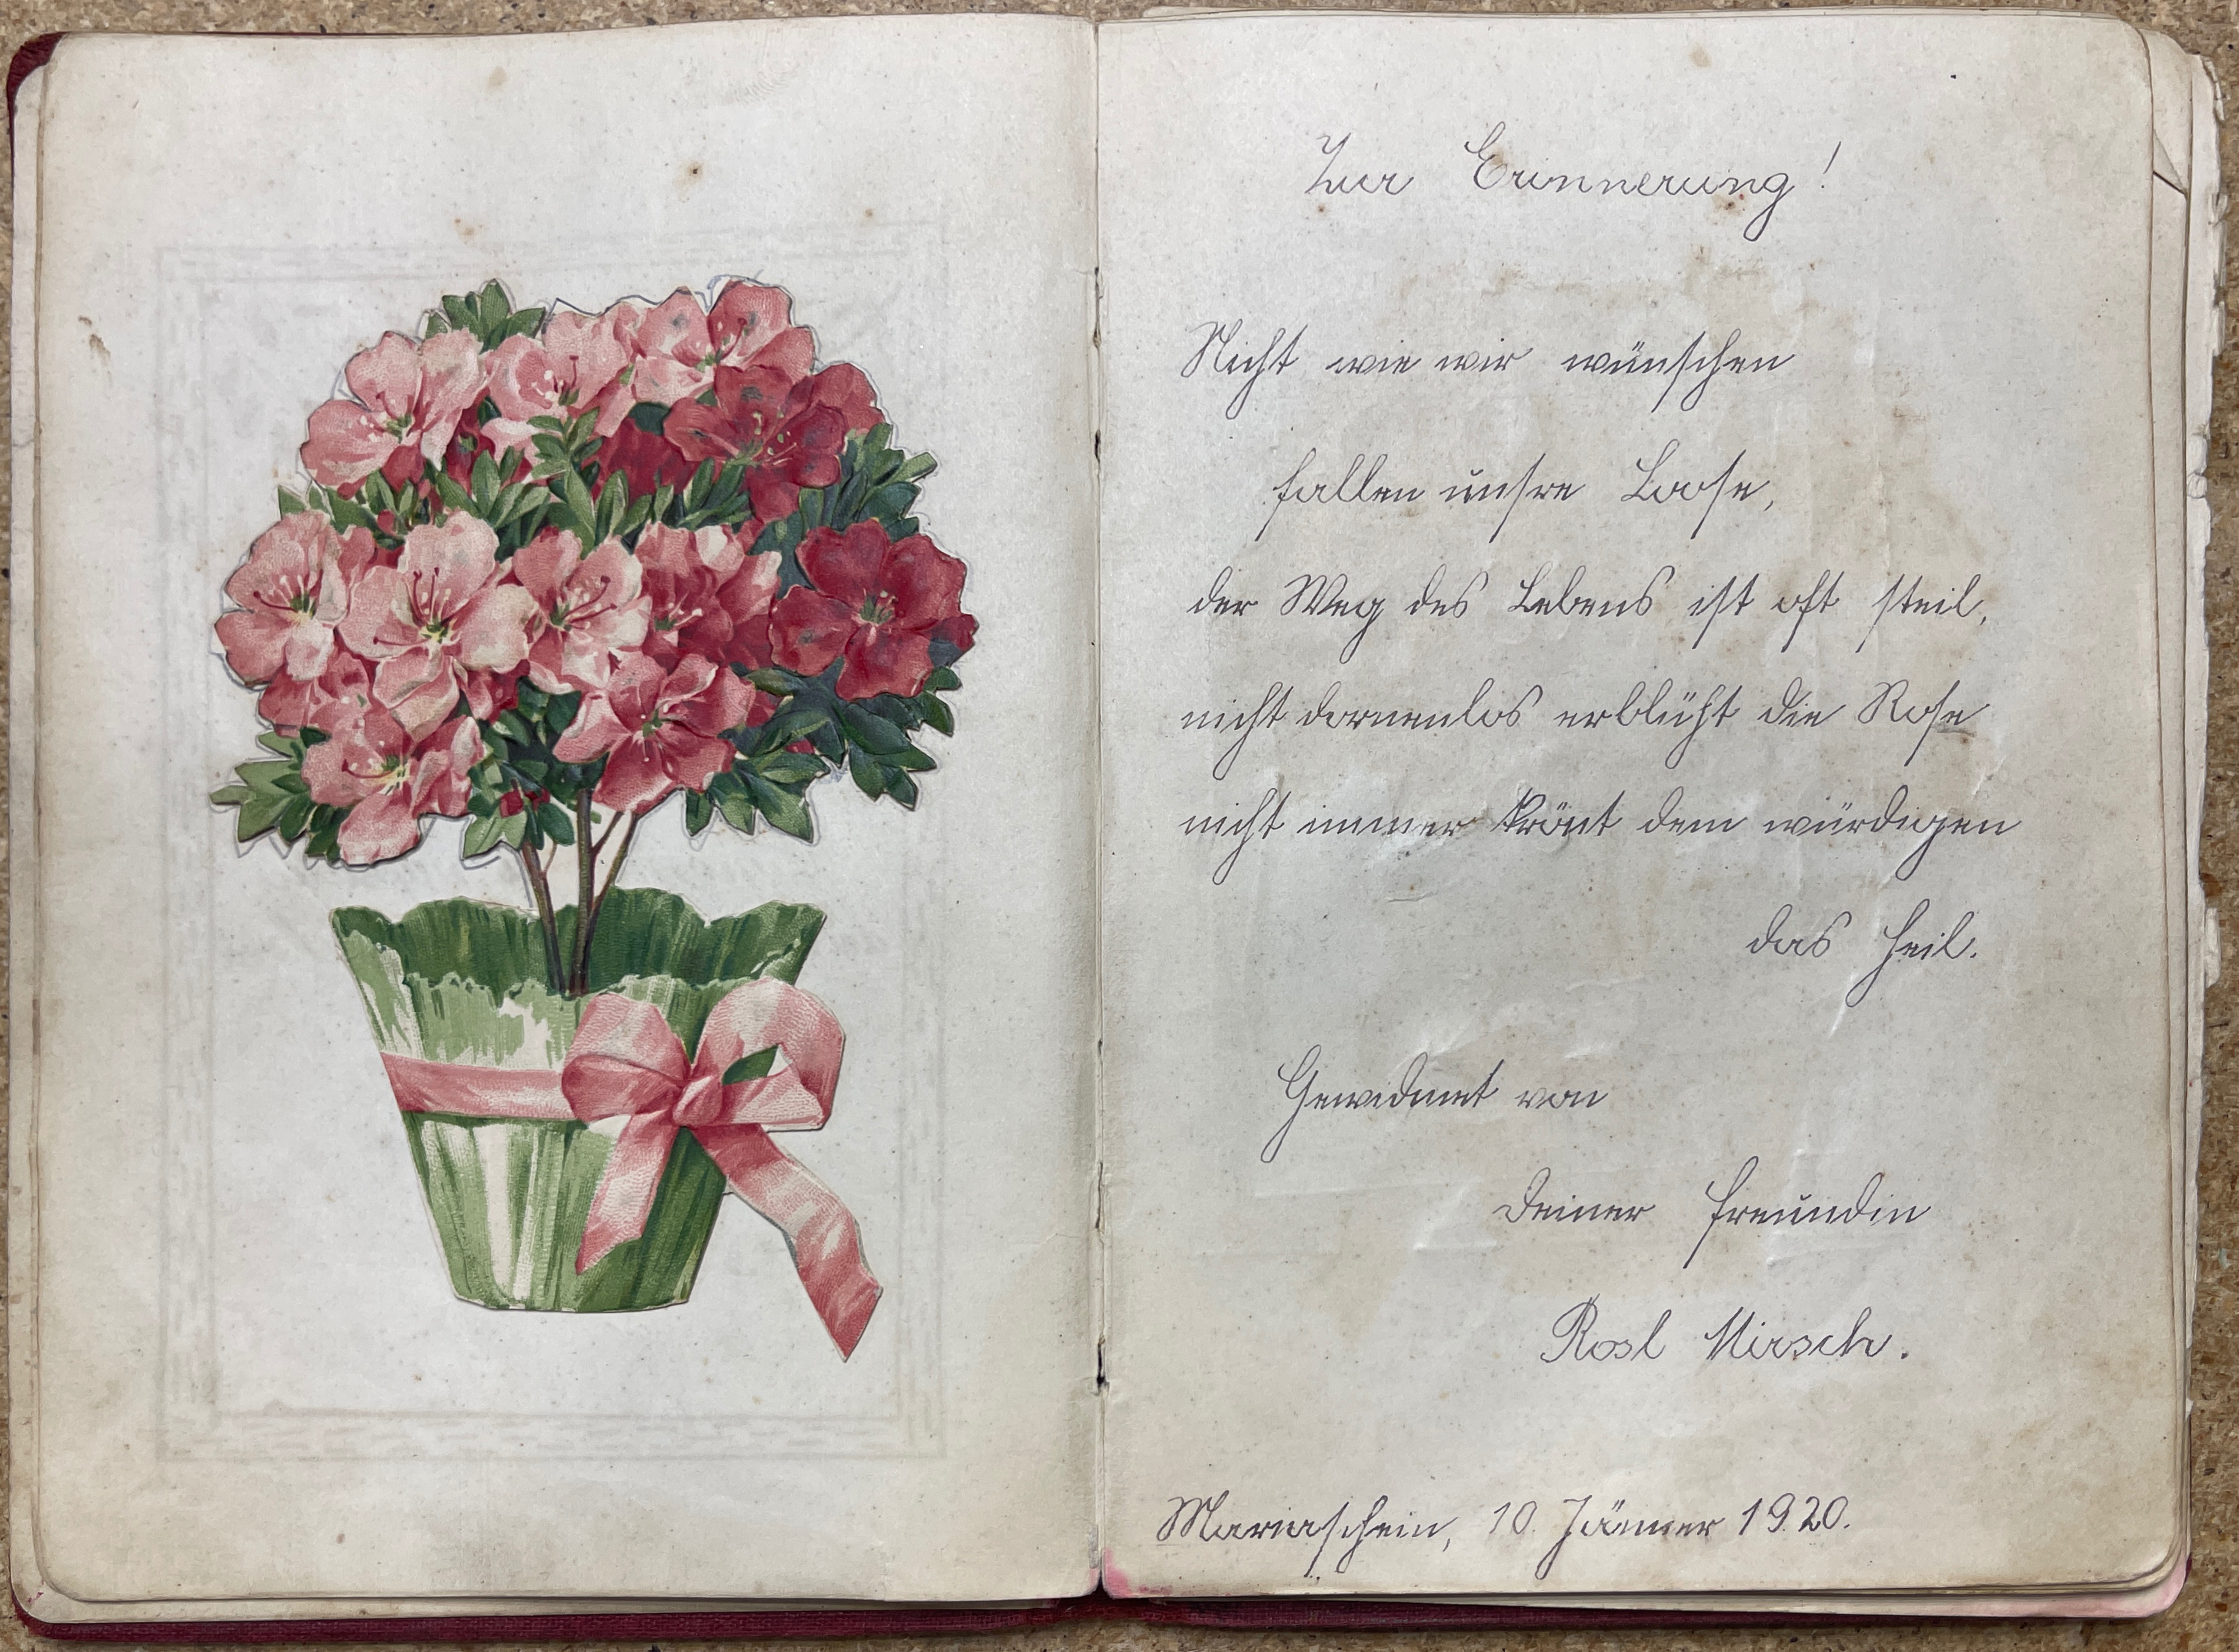 Zur Erinnerung!
Nicht wie wir wünschen
fallen unsre Loose,
der Weg des Lebens ist oft steil,
nicht dornenlos erblüht die Rose
nicht immer krönt dem würdigen
das Heil.
Gewidmet von
Deiner Freundin
Rosl Mirsch.
Mariaschein, 10. Jänner 1920.